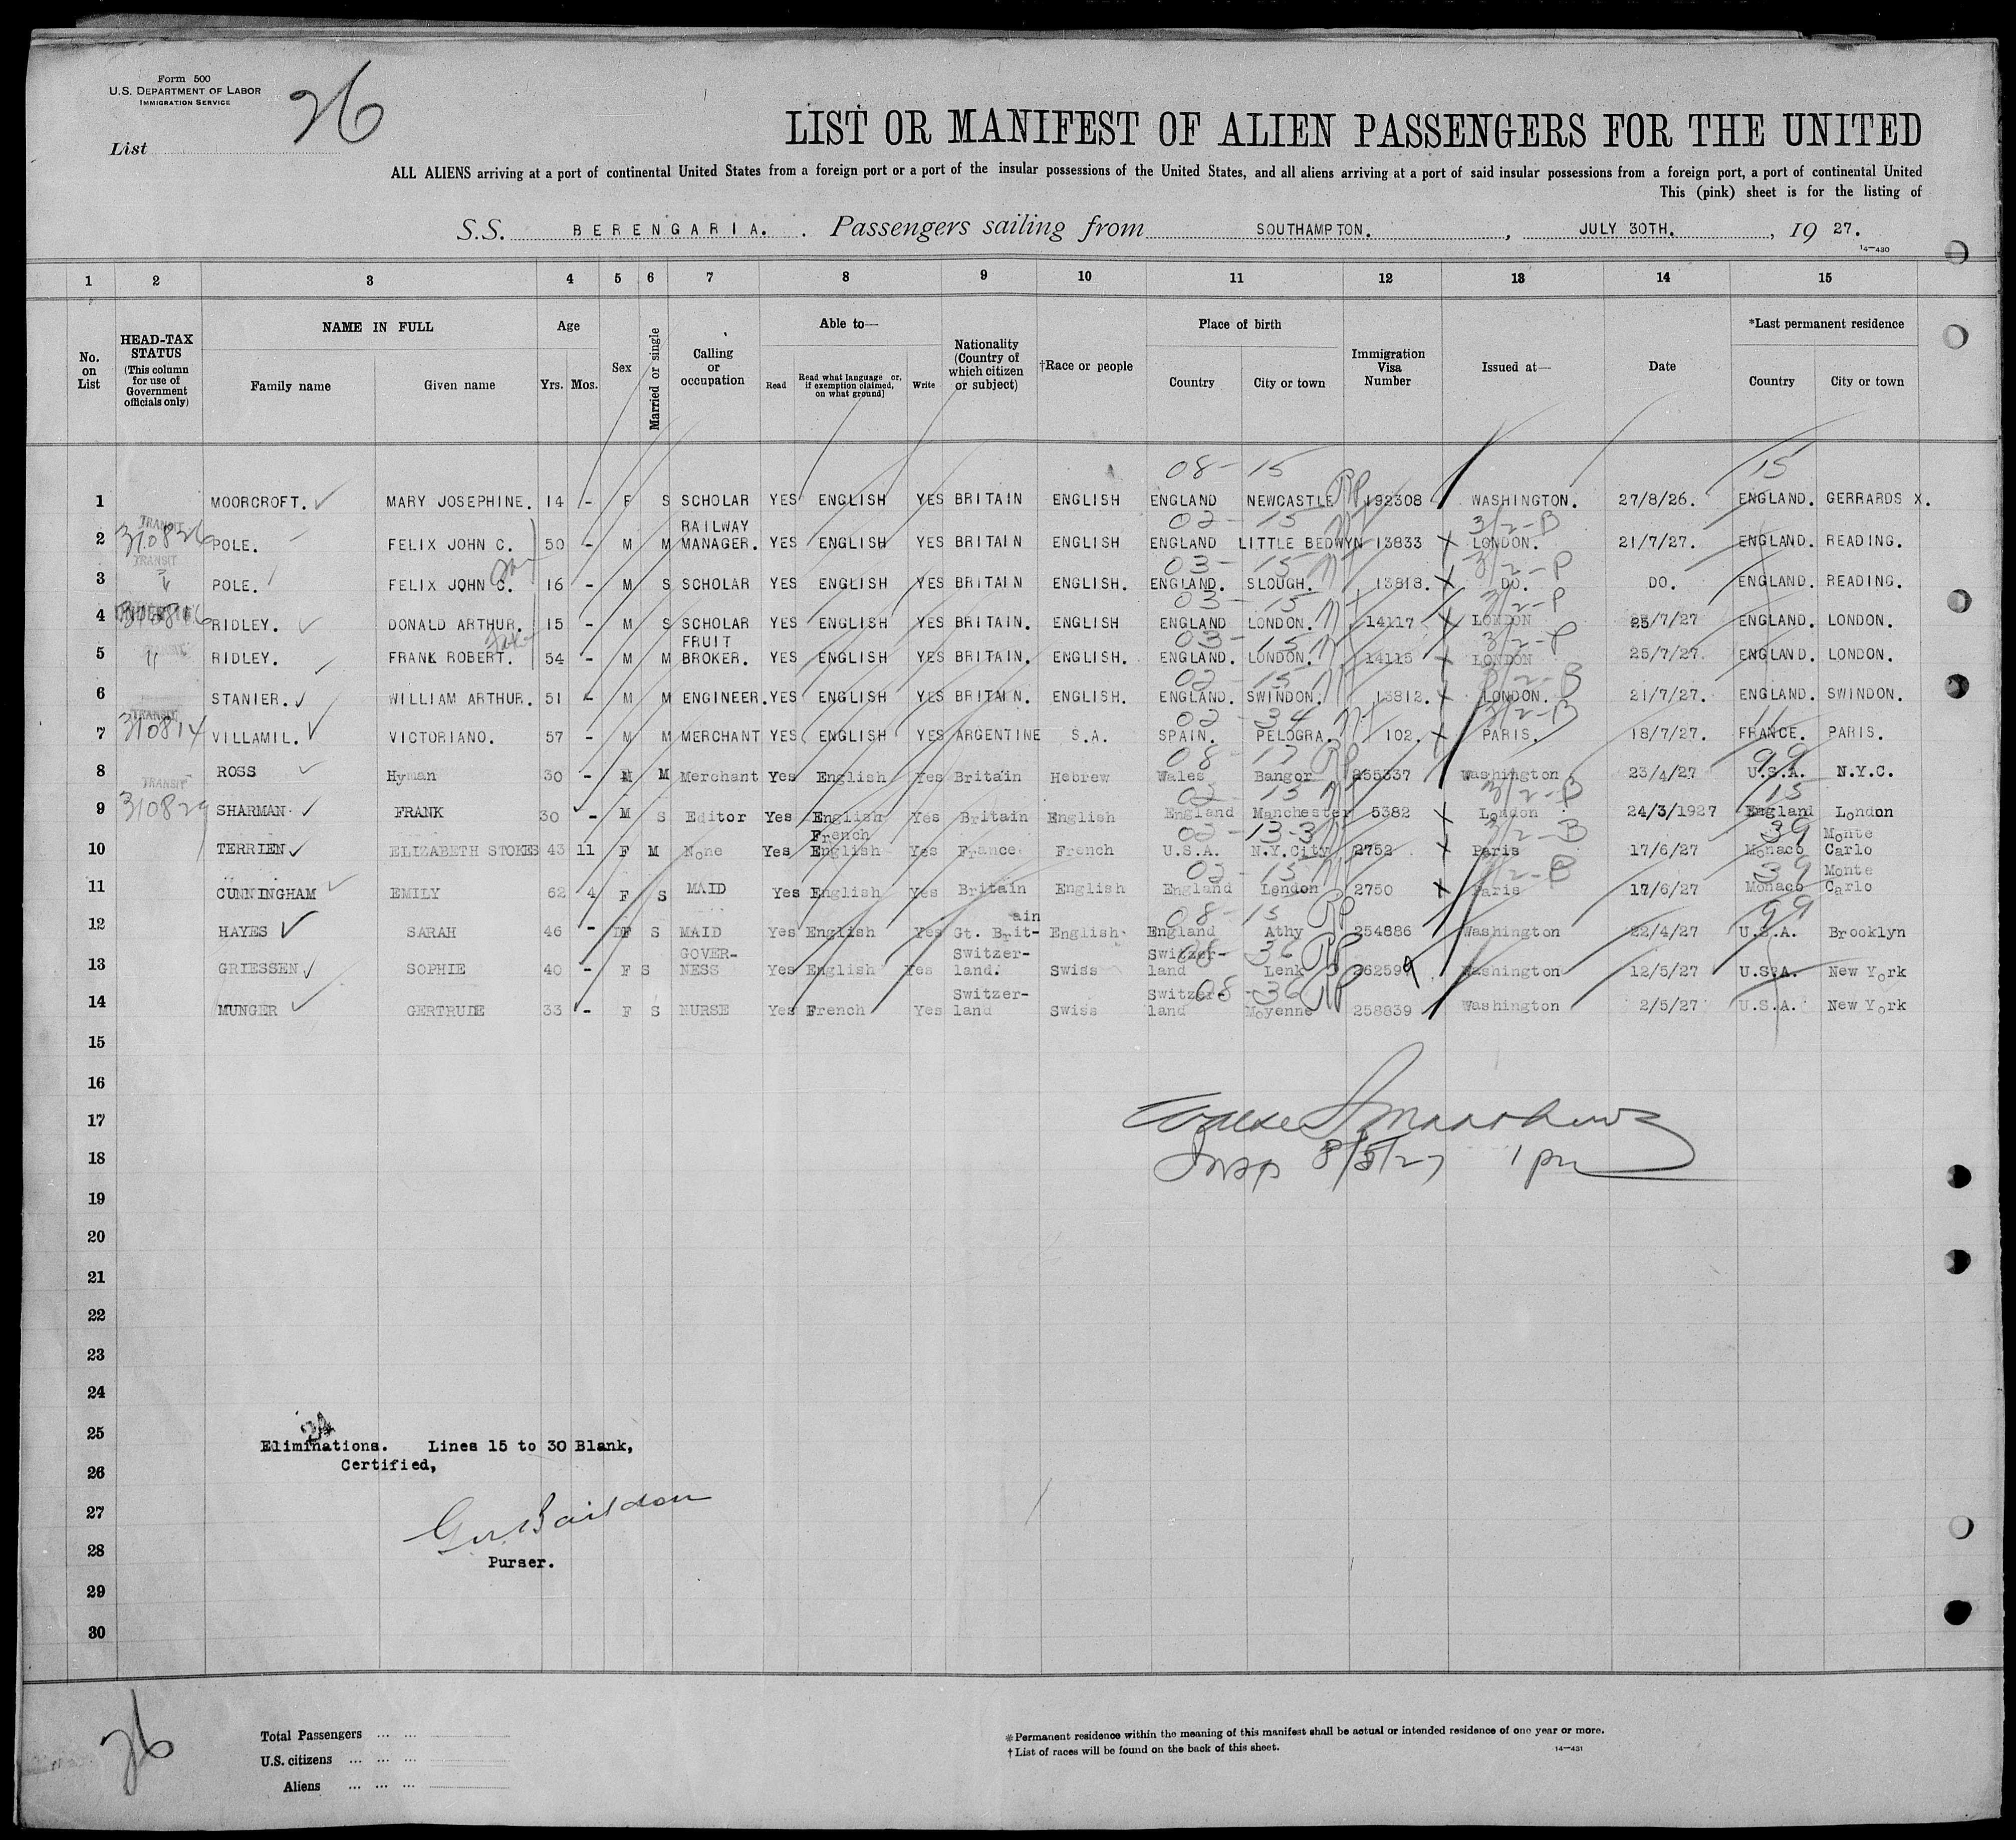 Form 500
U.S. DEPARTMENT OF LABOR
IMMIGRATION SERVICE
List 26
LIST OR MANIFEST OF ALIEN PASSENGERS FOR THE UNITED
ALL ALIENS arriving at a port of continental United States from a foreign port or a port of the insular possessions of the United States, and all aliens arriving at a port of said insular possessions from a foreign port, a port of continental United
This (pink) sheet is for the listing of
S.S. BERENGARIA. Passengers sailing from SOUTHAMPTON. , JULY 30TH. , 19 27.
14-430
1 2 3 4 5 6 7 8 9 10 11 12 13 14 15
No. on List
HEAD-TAX STATUS (This column for use of Government officials only)
NAME IN FULL
Family name Given name
Age
Yrs. Mos.
Sex
Married or single
Calling or occupation
Able to—
Read Read what language or, if exemption claimed, on what ground] Write
Nationality (Country of which citizen or subject)
†Race or people
Place of birth
Country City or town
Immigration Visa Number
Issued at—
Date
*Last permanent residence
Country City or town
08-15 15
1 MOORCROFT. MARY JOSEPHINE. 14 - F S SCHOLAR YES ENGLISH YES BRITAIN ENGLISH ENGLAND NEWCASTLE RP 192308 WASHINGTON. 27/8/26. ENGLAND. GERRARDS X.
TRANSIT 02-15 3/2-B
2 310826 POLE. FELIX JOHN C. 50 - M M RAILWAY MANAGER. YES ENGLISH YES BRITAIN ENGLISH ENGLAND LITTLE BEDWYN 13833 X LONDON. 21/7/27. ENGLAND. READING.
TRANSIT 03-15 3/2-P
3 POLE. FELIX JOHN C. 16 - M S SCHOLAR YES ENGLISH YES BRITAIN ENGLISH. ENGLAND. SLOUGH. 13818. X DO. DO. ENGLAND. READING.
03-15 3/2-P
4 RIDLEY. DONALD ARTHUR. 15 - M S SCHOLAR YES ENGLISH YES BRITAIN. ENGLISH ENGLAND LONDON. 14117 X LONDON 25/7/27 ENGLAND. LONDON.
03-15 3/2-P
5 " RIDLEY. FRANK ROBERT. 54 - M M FRUIT BROKER. YES ENGLISH YES BRITAIN. ENGLISH. ENGLAND. LONDON. 14115 X LONDON 25/7/27. ENGLAND. LONDON.
02-15 3/2-B
6 STANIER. WILLIAM ARTHUR. 51 - M M ENGINEER. YES ENGLISH YES BRITAIN. ENGLISH. ENGLAND. SWINDON. 13812. X LONDON. 21/7/27. ENGLAND. SWINDON.
TRANSIT 02-34 3/2-B 11
7 310814 VILLAMIL. VICTORIANO. 57 - M M MERCHANT YES ENGLISH YES ARGENTINE S.A. SPAIN. PELOGRA. 102. X PARIS. 18/7/27. FRANCE. PARIS.
08-17 99
8 ROSS Hyman 30 - M M Merchant Yes English Yes Britain Hebrew Wales Bangor RP 255337 Washington 23/4/27 U.S.A. N.Y.C.
TRANSIT 02-15 3/2-B 15
9 310829 SHARMAN FRANK 30 - M S Editor Yes English Yes Britain English England Manchester 5382 X London 24/3/1927 England London
02-13-3 3/2-B 39
10 TERRIEN ELIZABETH STOKES 43 11 F M None Yes French English Yes France French U.S.A. N.Y.City 2752 X Paris 17/6/27 Monaco Monte Carlo
02-15 3/2-B 39
11 CUNNINGHAM EMILY 62 4 F S MAID Yes English Yes Britain English England London 2750 X Paris 17/6/27 Monaco Monte Carlo
08-15 99
12 HAYES SARAH 46 - F S MAID Yes English Yes Gt. Brit-ain English England Athy RP 254886 Washington 22/4/27 U.S.A. Brooklyn
08-36
13 GRIESSEN SOPHIE 40 - F S GOVER-NESS Yes English Yes Switzer-land. Swiss Switzer-land Lenk RP 262599 Washington 12/5/27 U.S.A. New York
08-36
14 MUNGER GERTRUDE 33 - F S NURSE Yes French Yes Switzer-land Swiss Switzer-land Moyenne RP 258839 Washington 2/5/27 U.S.A. New York
15
16
17
18 Insp 8/5/27 1 pm
19
20
21
22
23
24
25
Eliminations. Lines 15 to 30 Blank,
Certified,
26
27
28
Purser.
29
30
26
Total Passengers ... ...
U.S. citizens ... ... ...
Aliens ... ... ...
*Permanent residence within the meaning of this manifest shall be actual or intended residence of one year or more.
†List of races will be found on the back of this sheet.
14-431